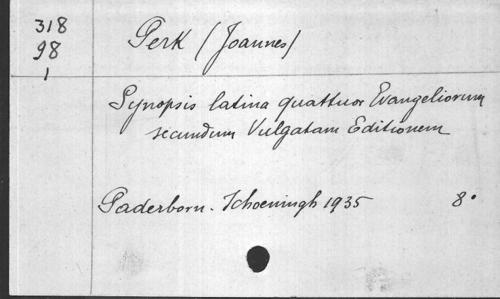 318
98
1
Perk (Joannes)
Synopsis latina quattuor Evangeliorum
secundum Vulgatam Editionem
Paderborn. Schoeningh 1935 8°